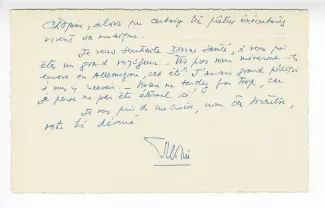 Chopin, alors que certains très piètres exécutants
vivent sa musique.
Je vous souhaite bonne santé, à vous qui
êtes un grand voyageur. Vos pas vous mèneront-ils
encore en Allemagne, cet été? J'aurais grand plaisir
à vous y recevoir. Mais ne tardez pas trop, car
je pense ne pas être éternel, ici!
Je vous prie de me croire, mon cher Maître,
votre très dévoué